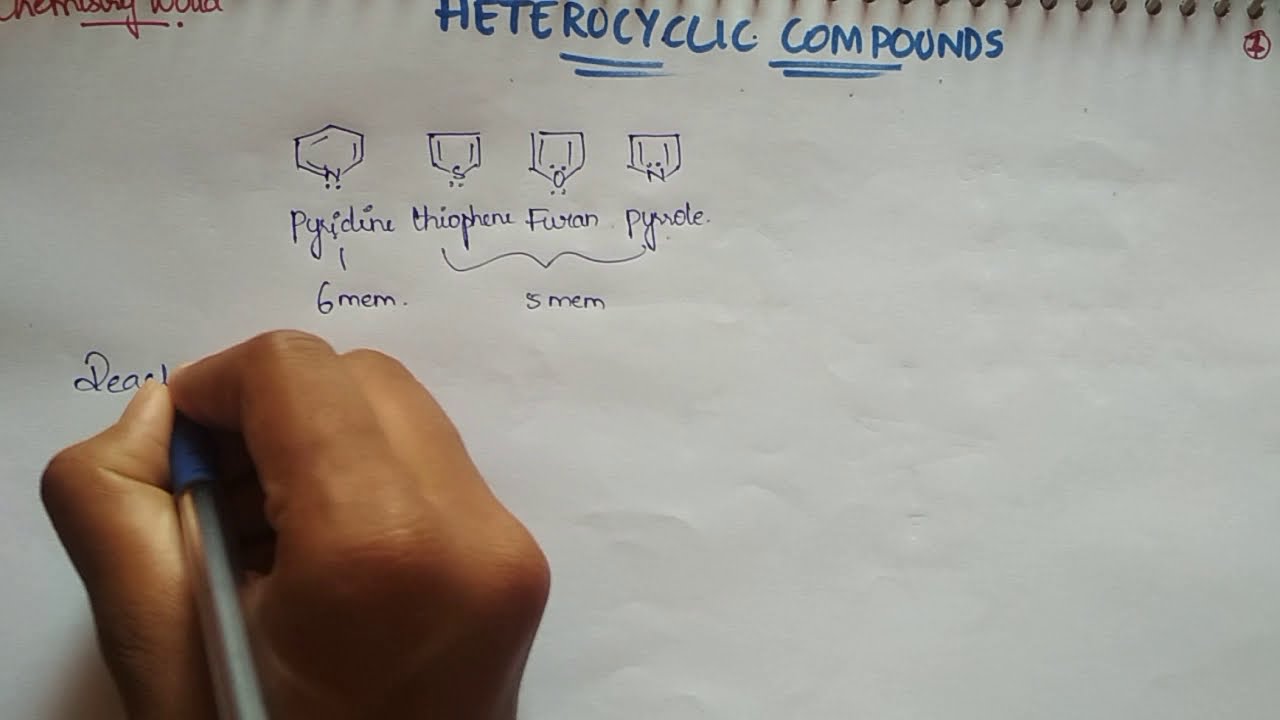 Chemistry World
HETEROCYCLIC COMPOUNDS
1
N S O N
Pyridine thiophene Furan pyrrole.
6 mem. 5 mem